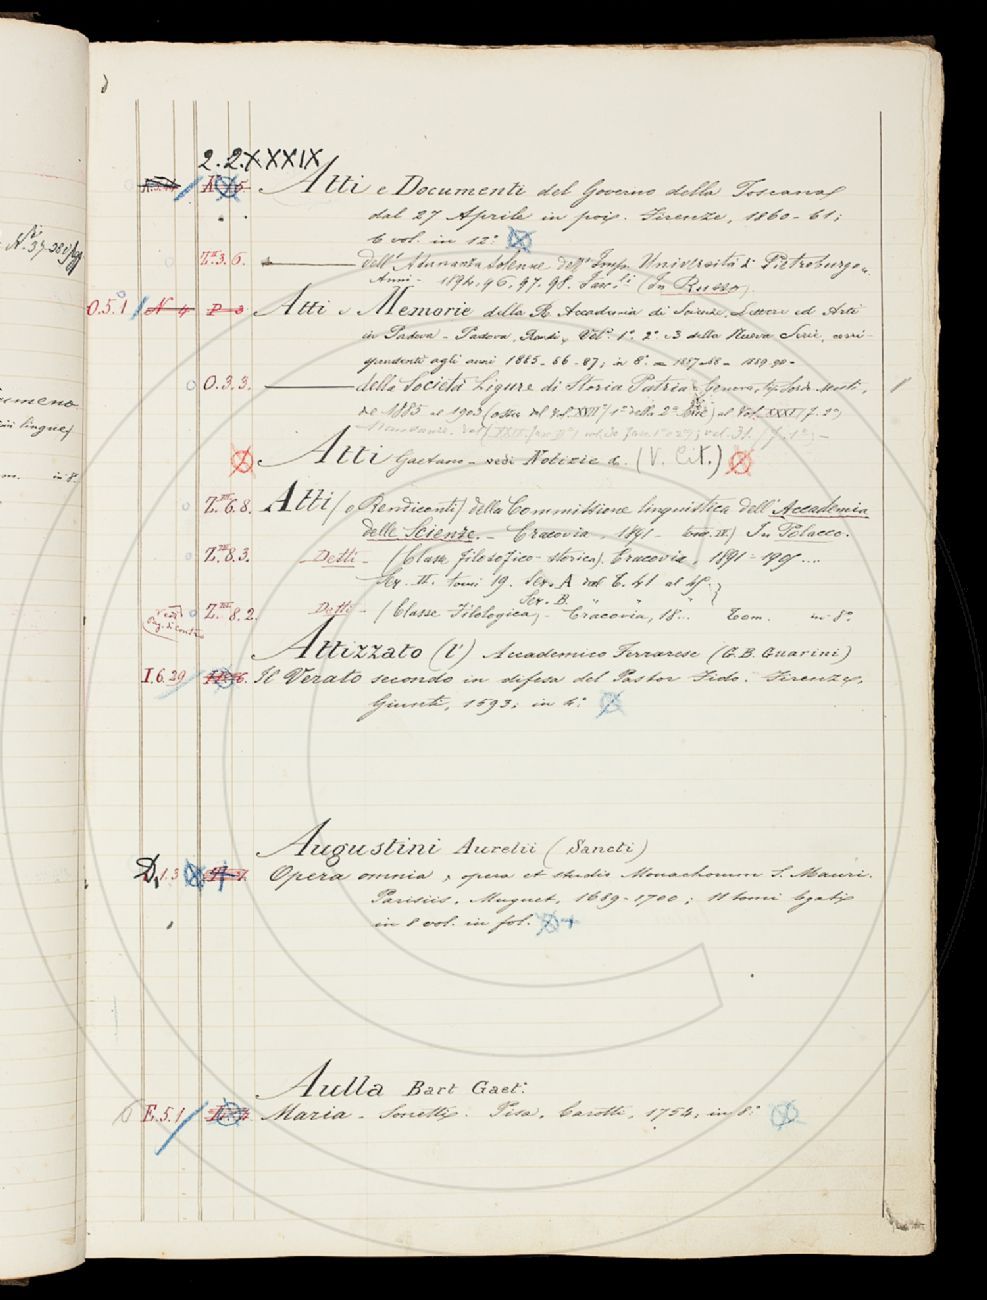 2.2.XXXIX
Atti e Documenti del Governo della Toscana
dal 27 Aprile in poi. Firenze, 1860-61;
6 vol. in 12.º
Z.III 3.6. — dell' Adunanza solenne dell' Imp. Università di Pietroburgo
Anni 1894, 96, 97, 98. Fasc.li (In Russo)
O.5.1 N 4 P 3 Atti e Memorie della R. Accademia di Scienze, Lettere ed Arti
in Padova - Padova, Randi, Vol.º 1.º 2.º e 3 della Nuova Serie, corri-
spondenti agli anni 1885-86-87; in 8.º - 1887-88 - 1889-90-
O.3.3. — della Società Ligure di Storia Patria. Genova, tip. Sordo-Muti,
1885 al 1903 (ossia dal Vol. XVII (1º della 2ª Serie) al Vol. XXXI f. 2º)
Mancano.
Atti Gaetano - vedi Notizie &. (V. Cit.)
Z.III 6.8. Atti (o Rendiconti) della Commissione linguistica dell' Accademia
delle Scienze. - Cracovia 1891- In Polacco.
Z.III 8.3. Detti - (Classe filosofico-storica). Cracovia. 1891=
Ser. II. tomi 19. Ser. A vol. T. 41 al 45.
Ser. B.
vedi
Z.III 8.2. Detti - (Classe Filologica) - Cracovia, 18... Tom. in 8º
Attizzato (l') Accademico Ferrarese (G.B. Guarini)
I.6.29 Il Verato secondo in difesa del Pastor Fido. Firenze,
Giunti, 1593; in 4.º
Augustini Aurelii (Sancti)
D, 1.3 Opera omnia, opera et studio Monachorum S. Mauri.
Parisiis, Muguet, 1689-1700; 11 tomi legati
in 8 vol. in fol.
Aulla Bart Gaet.
E.5.1 Maria - Sonetti. Pisa, Carotti, 1754; in 8.º